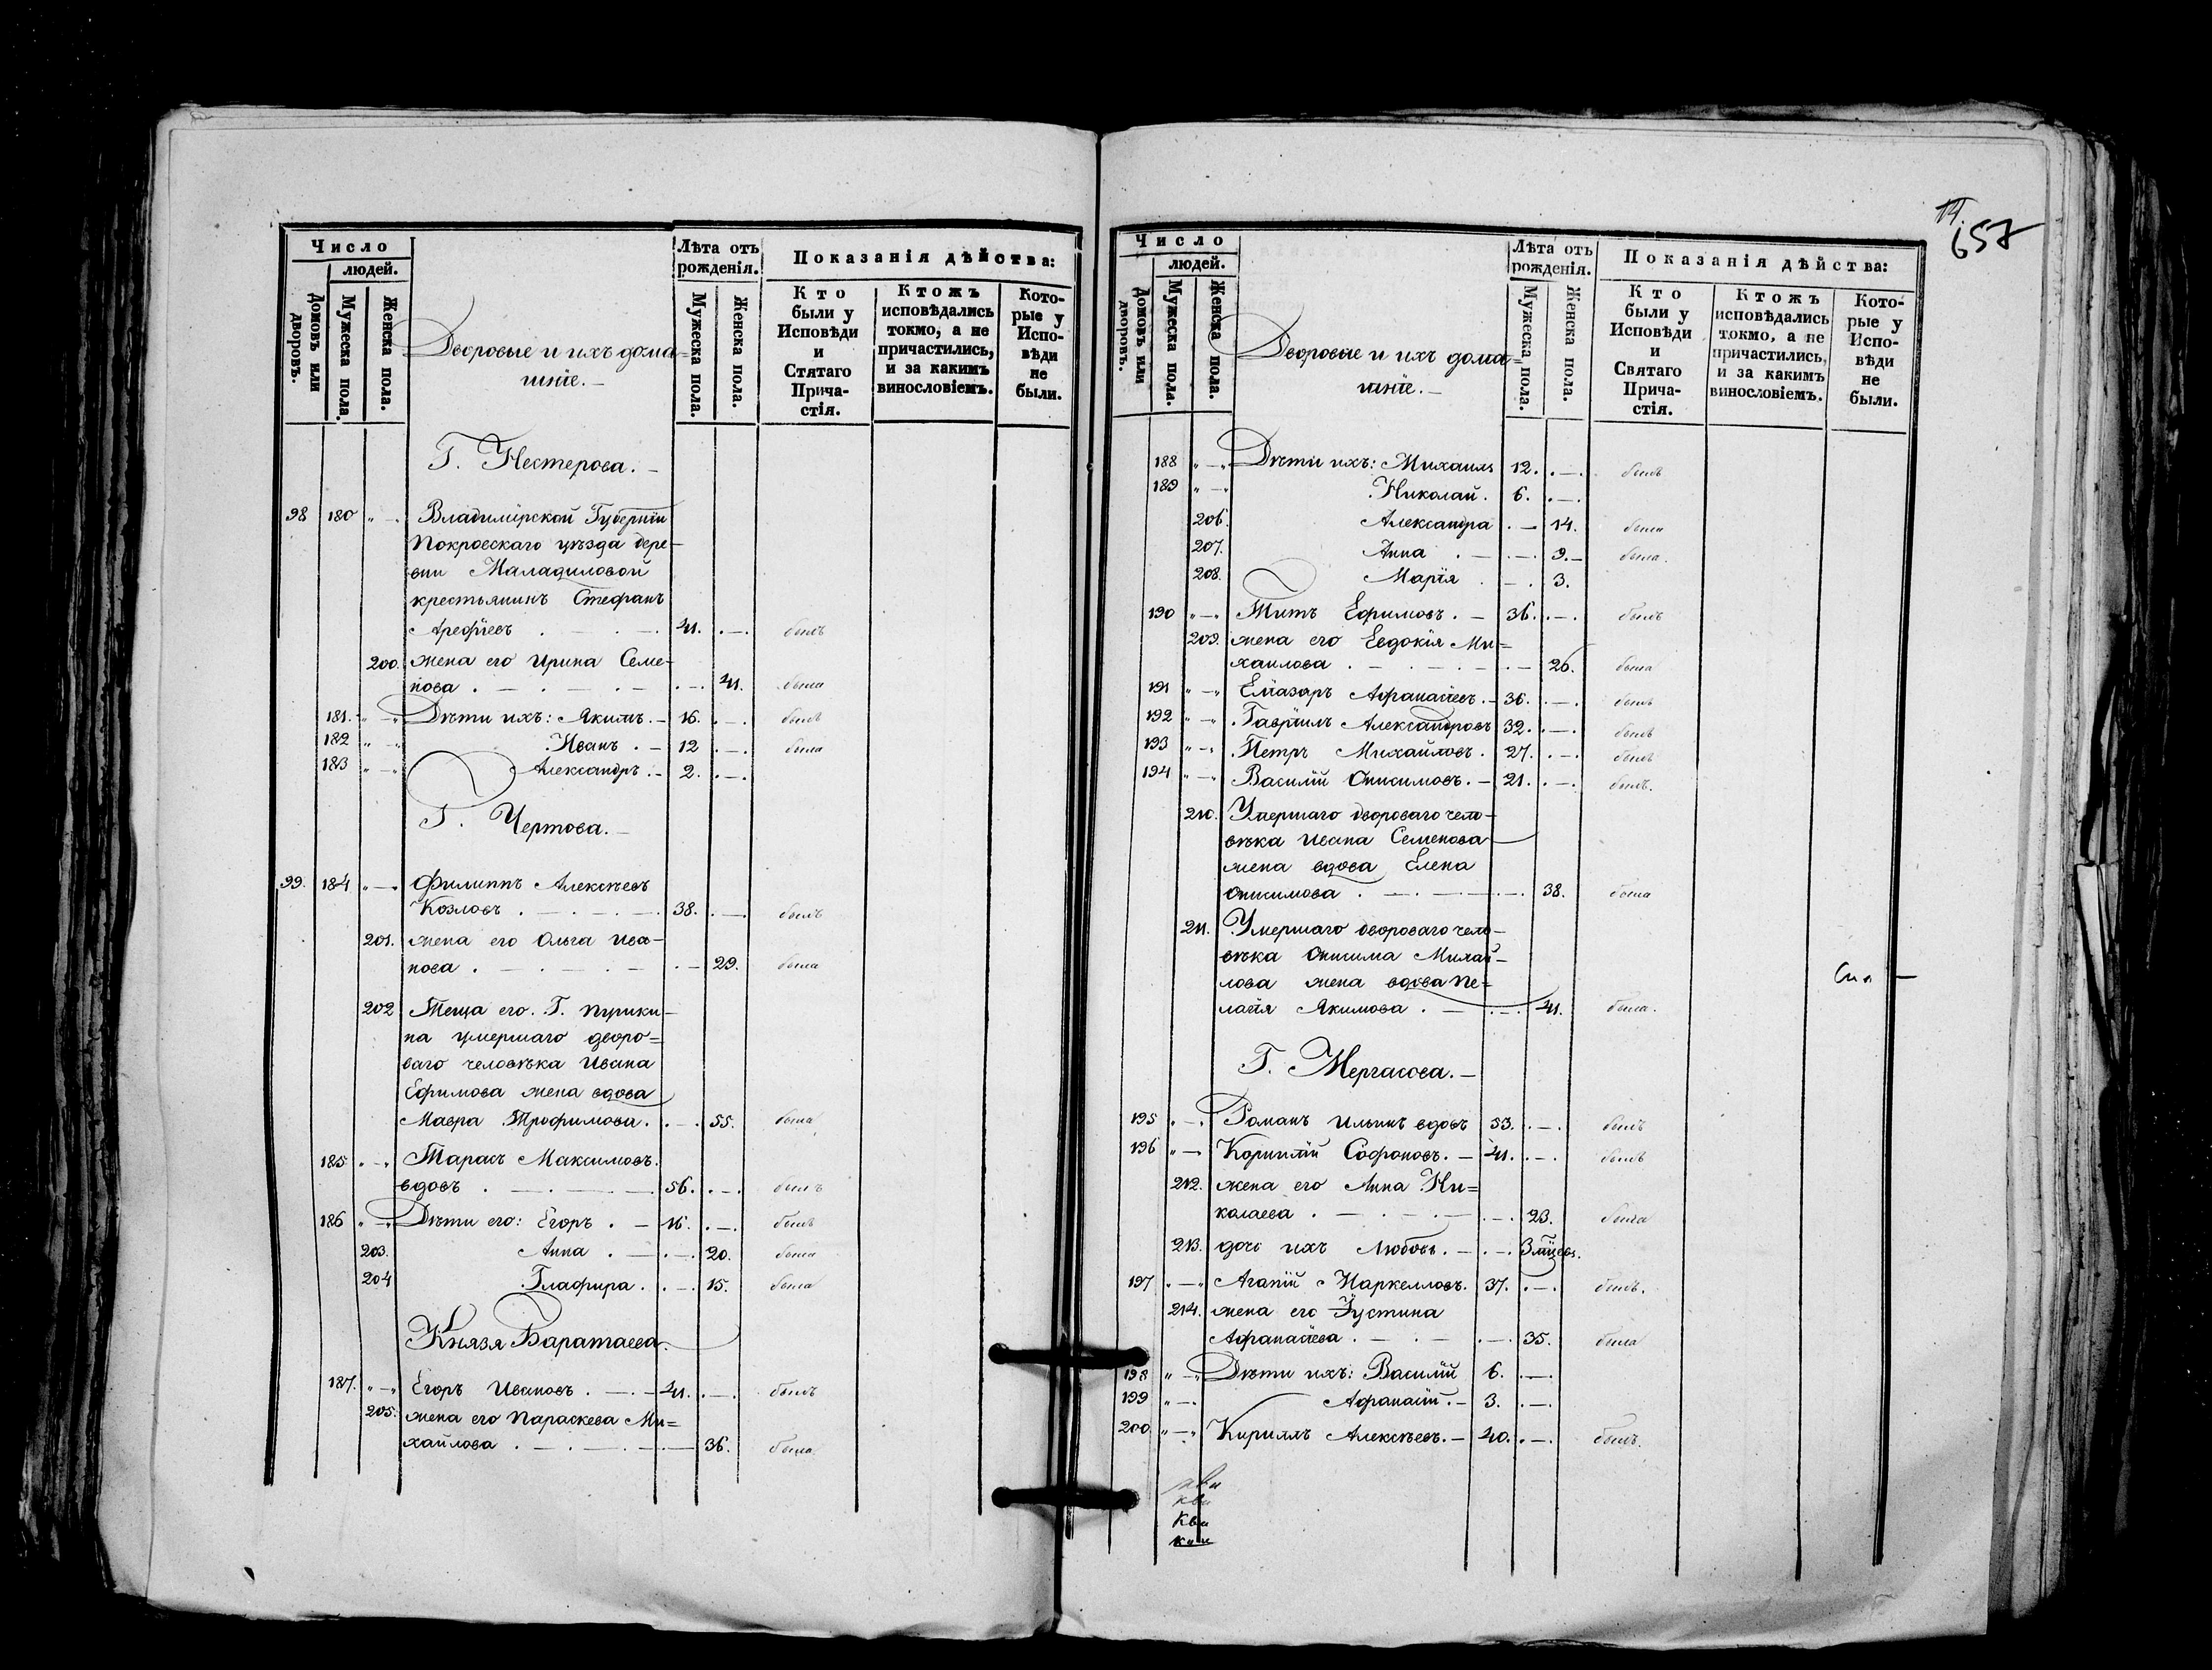 Число
людей.
Домовъ или дворовъ.
Мужеска пола.
Женска пола.
Дворовые и ихъ дома=
шніе. —
Лѣта отъ
рожденія.
Мужеска пола.
Женска пола.
Показанія дѣйства:
Кто
были у
Исповѣди
и
Стятаго
Прича-
стія.
Ктожъ
исповѣдались
токмо, а не
причастились,
и за какимъ
винословіемъ.
Кото-
рые у
Испо-
вѣди
не
были.
Г. Нестерова. —
98 180 „ — Владимірской Губерніи
Покровскаго уѣзда дере-
вни Маладиловой
крестьянинъ Стефанъ
Арефіевъ . — . 41. . — . былъ
200. жена его Ирина Семе-
нова . — . — . — . — . 41. была
181. „ — „ Дѣти ихъ: Якимъ. — 16. . — . былъ
182 „ — „ Иванъ . — 12 . — . была
183 „ — „ Александръ . — 2. . — .
Г. Чертова. —
99. 184 „ — „ Филиппъ Алексѣевъ
Козловъ . — . — . 38. . — . былъ
201. жена его Ольга Ива-
нова . — . — . — . — 29. была
202 Теща его. Г. Пурики-
на умершаго дворо=
ваго человѣка Ивана
Ефимова жена вдова
Мавра Трофимова . . — . 55. была
185 „ — „ Тарасъ Максимовъ.
вдовъ . — . — . 56. . — . былъ
186 „ — „ Дѣти его: Егоръ . — 16. . — . былъ
203. Анна . — . — . 20. была
204 Глафира . . — . 15. была
Князя Баратаева.
187. „ — „ Егоръ Ивановъ . — . — 41. . — . былъ
205. жена его Параскева Ми=
хайлова . — . — . — 36. была
657
Число
людей.
Домовъ или дворовъ.
Мужеска пола.
Женска пола.
Дворовые и ихъ дома=
шніе. —
Лѣта отъ
рожденія.
Мужеска пола.
Женска пола.
Показанія дѣйства:
Кто
были у
Исповѣди
и
Святаго
Прича-
стія.
Ктожъ
исповѣдались
токмо, а не
причастились,
и за какимъ
винословіемъ.
Кото-
рые у
Испо-
вѣди
не
были.
188 „ — „ Дѣти ихъ: Михаилъ 12. . — . былъ
189 „ — „ Николай . 6. . — .
206. Александра . — 14. была
207. Анна . — . — . 9. — была.
208. Марія . — . 3.
190 „ — „ Титъ Ефимовъ . — 36. . — . былъ
209. жена его Евдокія Ми=
хаилова . — . — . — . — 26. была
191 „ — „ Елиазаръ Афанасіевъ . — 36. . — . былъ
192 „ — „ Гавріилъ Александровъ 32. . — . былъ
193 „ — „ Петръ Михайловъ . 27. . — . былъ
194 „ — „ Василій Онисимовъ. — 21. . — . былъ.
210. Умершаго двороваго чело-
вѣка Ивана Семенова
жена вдова Елена
Онисимова . — . — . — . 38. была
211. Умершаго двороваго чело-
вѣка Онисима Михай-
лова жена вдова Пе=
лагія Якимова . — . — . 41. была.
Г. Мергасова. —
195 „ — „ Романъ Ильинъ вдовъ 53. . — . былъ
196 „ — „ Корнилій Софоновъ. — 41. . — . былъ
212. жена его Анна Ни=
колаева . — . — . — . — . 23. была
213. дочь ихъ Любовь . — . — . 3 мѣсяц.
197 „ — „ Агапій Маркелловъ. 37. . — . былъ.
214. жена его Іустина
Афанасіева . — . — . — . 35. была
198 „ — „ Дѣти ихъ: Василій 6. . — .
199 „ — „ Афанасій . — 3. . — .
200. „ — „ Кириллъ Алексѣевъ. — 40. . — . былъ.